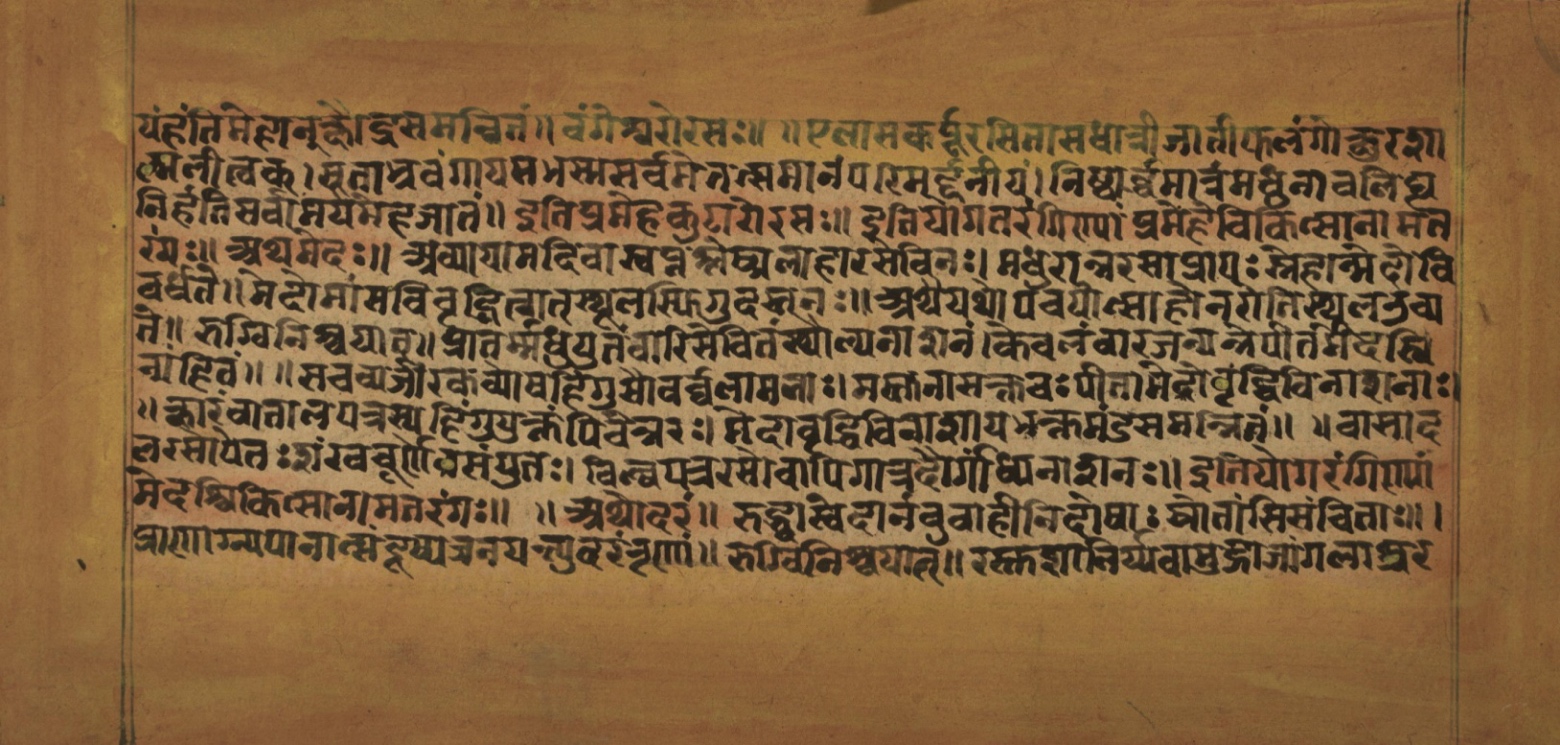 यंहंतिमेहानुक्षौद्रसमन्वितं॥ वंगेश्वरोरसः॥ ॥एलासकर्पूरसितासधात्रीजातीफलंगोक्षुरशा
ल्मलीत्वक्।सूताभ्रवंगायसभस्मसर्वमेतत्समानंपरिमर्द्दनीयं। निष्कार्द्धमात्रंमधुनावलिह्य
निहंतिसर्वामयमेहजातं॥ इतिप्रमेहकुठारोरसः॥ इतियोगतरंगिण्यां प्रमेहचिकित्सानामत
रंगः॥ अथमेदः॥ अव्यायामदिवास्वप्नश्लेष्मलाहारसेविनः। मधुरोन्नरसःप्रायः स्नेहान्मेदोवि
वर्धते॥ मेदोमांसविवृद्धित्वात्स्थूलस्फिगुदरस्तनः॥ अयथोपचयोत्साहोनरोतिस्थूलउच्य
ते॥ रुग्विनिश्चयात्॥ प्रातर्मधुयुतंवारिसेवितंस्थौल्यनाशनं।
न्यहितं॥ ॥सचव्यजीरकव्योषहिंगुसौवर्चलामलाः। मस्तुनासक्तवःपीतामेदोवृद्धिविनाशनाः।
॥क्षारंवातालपत्रस्यहिंगुयुक्तंपिबेन्नरः। मेदोवृद्धिविनाशायभक्तमंडसमन्वितं॥ ॥वासाद
लरसोपेतःशंखचूर्णेनसंयुतः। बिल्वपत्ररसोवापिगात्रदौर्गंध्यनाशनः॥ इतियोगरंगिण्यां
मेदश्चिकित्सानामतरंगः॥ ॥अथोदरं॥ रुद्ध्वास्वेदांबुवाहीनिदोषाःस्रोतांसिसंचिताः॥।
प्राणाग्न्यपानान्संदूष्यजनयन्त्युदरंनृणां॥ रुग्विनिश्चयात्॥ रक्तशालिर्यवामुद्गाजांगला